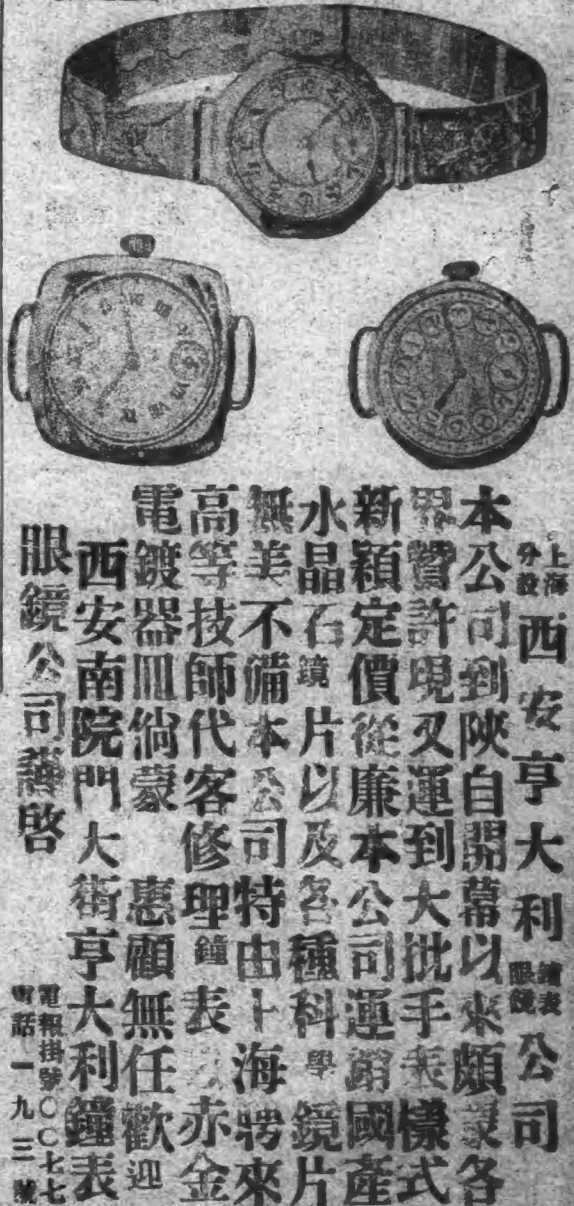 上海分設西安亨大利鐘表眼鏡公司
本公司到陝自開幕以來頗蒙各
界贊許現又運到大批手表樣式
新穎定價從廉本公司運銷國產
水晶石鏡片以及各種科學鏡片
無美不備本公司特由上海聘來
高等技師代客修理鐘表赤金
電鍍器皿倘蒙 惠顧無任歡迎
西安南院門大街亨大利鐘表
眼鏡公司謹啓
電報掛號〇〇七七
電話一九三號